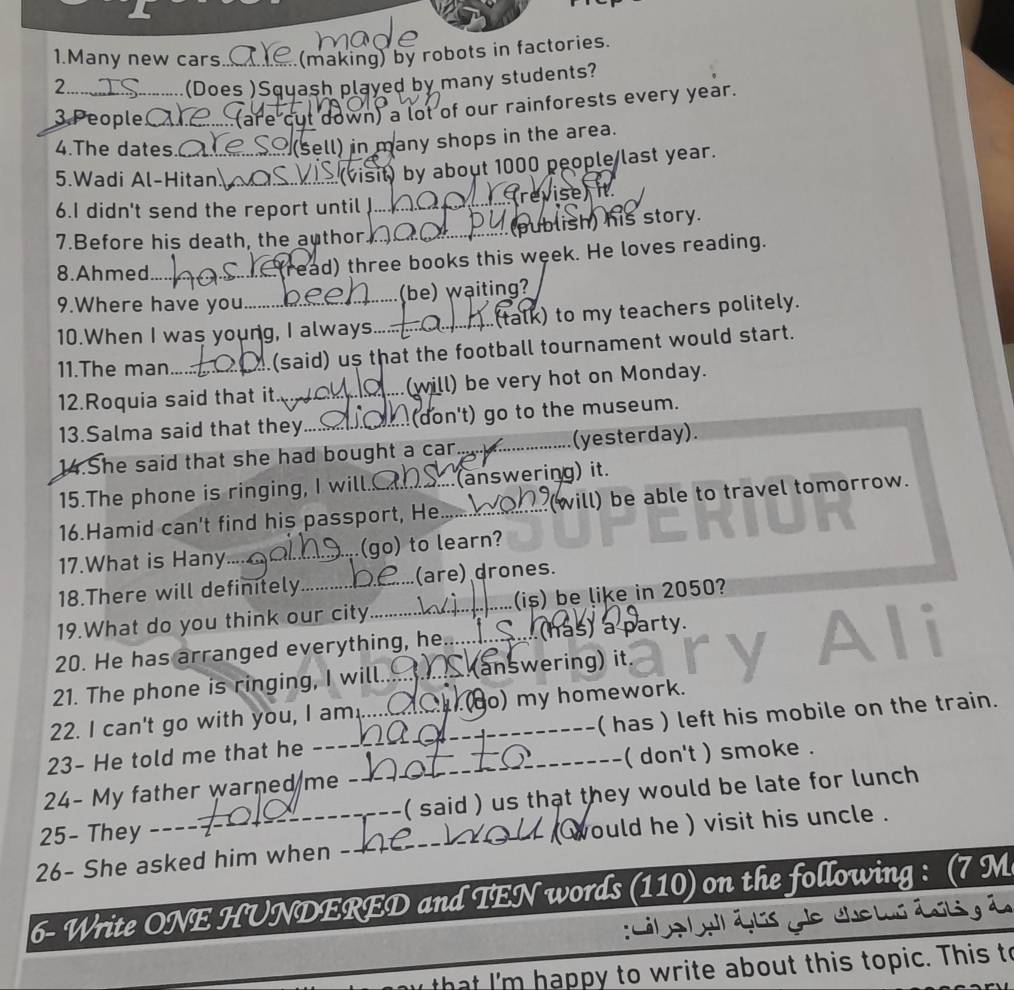 1.Many new cars are made (making) by robots in factories.
2. Is (Does )Squash played by many students?
3.People are cutting down (are cut down) a lot of our rainforests every year.
4.The dates are sold (sell) in many shops in the area.
5.Wadi Al-Hitan was visited (visit) by about 1000 people last year.
6.I didn't send the report until I had revised (revise) it.
7.Before his death, the author had published (publish) his story.
8.Ahmed has read (read) three books this week. He loves reading.
9.Where have you been (be) waiting?
10.When I was young, I always talked (talk) to my teachers politely.
11.The man told (said) us that the football tournament would start.
12.Roquia said that it would (will) be very hot on Monday.
13.Salma said that they didn't (don't) go to the museum.
14.She said that she had bought a car (yesterday).
15.The phone is ringing, I will answer (answering) it.
16.Hamid can't find his passport, He wong (will) be able to travel tomorrow.
17.What is Hany going (go) to learn?
18.There will definitely be (are) drones.
19.What do you think our city will (is) be like in 2050?
20. He has arranged everything, he is having (has) a party.
21. The phone is ringing, I will answer (answering) it.
22. I can't go with you, I am doing (go) my homework.
23- He told me that he had ( has ) left his mobile on the train.
24- My father warned me not to ( don't ) smoke .
25- They told ( said ) us that they would be late for lunch
26- She asked him when he would (would he ) visit his uncle .
SUPERIOR
Abdelbary Ali
6- Write ONE HUNDERED and TEN words (110) on the following : (7 M
مة وخاتمة تساعدك على كتابة البراجراف:
that I'm happy to write about this topic. This to